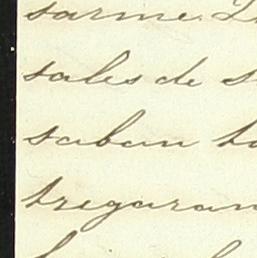 sarme. L
sales de s
saban to
tregaran